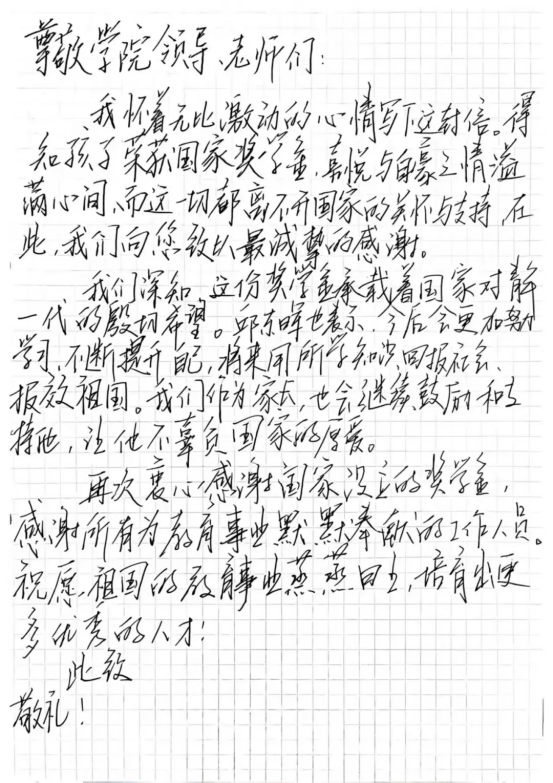 尊敬学院领导、老师们:
我怀着无比激动的心情写下这封信。得
知孩子荣获国家奖学金,喜悦与自豪之情溢
满心间,而这一切都离不开国家的关怀与支持,在
此,我们向您致以最诚挚的感谢。
我们深知,这份奖学金承载着国家对年轻
一代的殷切希望。邱东晖也表示,今后会更加努力
学习,不断提升自己,将来用所学知识回报社会、
报效祖国。我们作为家长,也会继续鼓励和支
持他,让他不辜负国家的厚爱。
再次衷心感谢国家设立的奖学金,
感谢所有为教育事业默默奉献的工作人员。
祝愿祖国的教育事业蒸蒸日上,培育出更
多优秀的人才!
此致
敬礼!